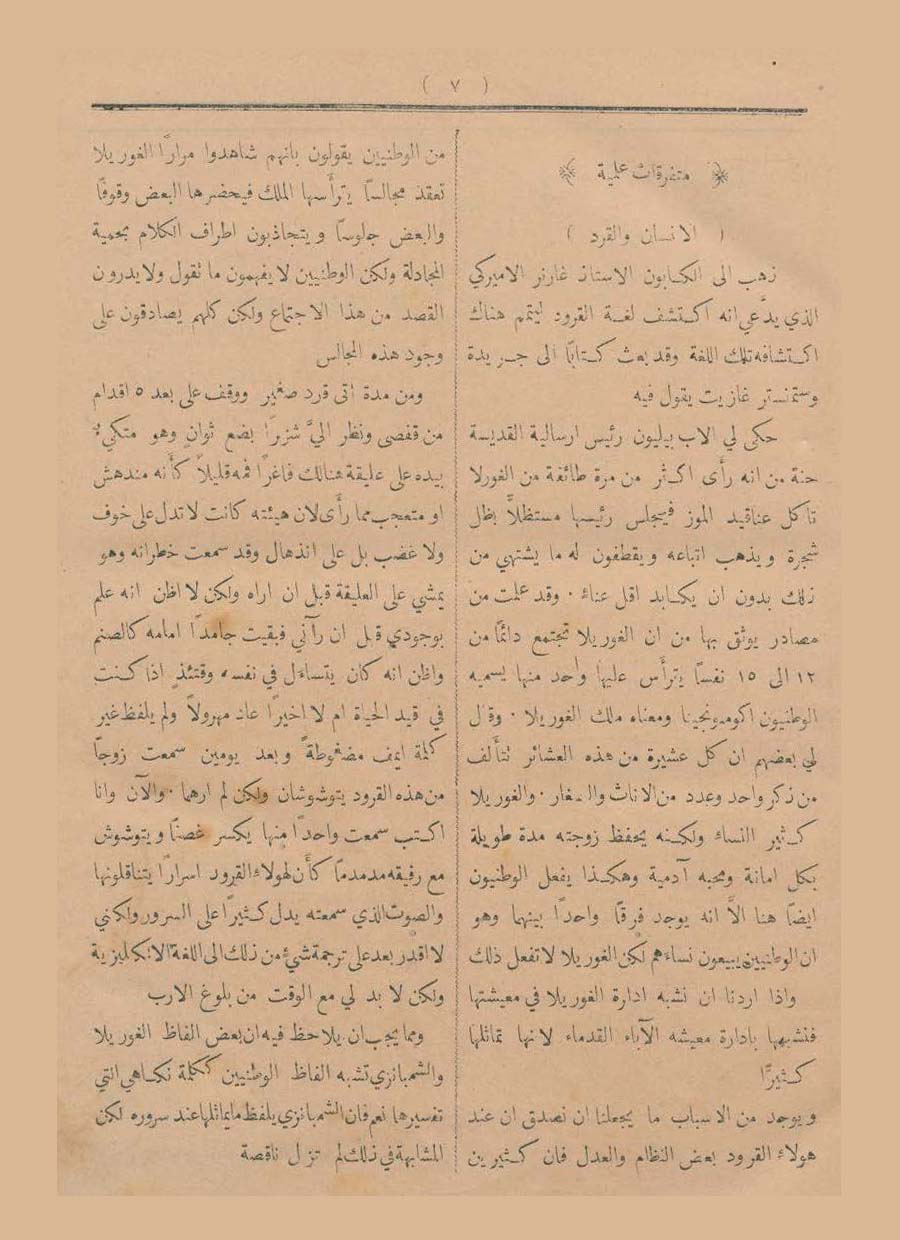 ( ٧ )
متفرقات علمية
( الانسان والقرد )
زهب الى الكابون الاستاذ غارنر الاميركي
الذي يدَّعي انه اكتشف لغة القرود ليتمم هناك
اكتشافه تلك اللغة وقد بعث كتابًا الى جريدة
وستمنستر غازيت يقول فيه
حكى لي الاب بيليون رئيس ارسالية القديسة
حنة من انه رأى اكثر من مرة طائفة من الغورلا
تاكل عناقيد الموز فيجلس رئيسها مستظلاً بظل
شجرة ويذهب اتباعه ويقطفون له ما يشتهي من
ذلك بدون ان يكابد اقل عناء ٠ وقد علمت من
مصادر يوثق بها من ان الغوريلا تجتمع دائمًا من
١٢ الى ١٥ نفسًا يترأس عليها واحد منها يسميه
الوطنيون اكومونجينا ومعناه ملك الغوريلا ٠ وقال
لي بعضهم ان كل عشيرة من هذه العشائر تتألف
من ذكر واحد وعدد من الاناث والصغار ٠ والغوريلا
كثير النساء ولكنه يحفظ زوجته مدة طويلة
بكل امانة ومحبه آدمية وهكذا يفعل الوطنيون
ايضًا هنا الاَّ انه يوجد فرقًا واحدًا بينهما وهو
ان الوطنيين يبيعون نساءهم لكن الغوريلا لا تفعل ذلك
واذا اردنا ان نشبه ادارة الغوريلا في معيشتها
فنشبهها بادارة معيشه الآباء القدماء لانها تماثلها
كثيرًا
ويوجد من الاسباب ما يجعلنا ان نصدق ان عند
هولاء القرود بعض النظام والعدل فان كثيرين
من الوطنيين يقولون بانهم شاهدوا مرارًا الغوريلا
تعقد مجالسًا يترأسها الملك فيحضرها البعض وقوفًا
والبعض جلوسًا ويتجاذبون اطراف الكلام بحمية
المجادلة ولكن الوطنيين لا يفهمون ما تقول ولا يدرون
القصد من هذا الاجتماع ولكن كلهم يصادقون على
وجود هذه المجالس
ومن مدة اتى قرد صغير ووقف على بعد ٥ اقدام
من قفصي ونظر اليَّ شزرًا بضع ثوانٍ وهو متكيء
بيده على عليقة هنالك فاغرًا فمه قليلاً كأنه مندهش
او متعجب مما رأى لان هيئته كانت لا تدل على خوف
ولا غضب بل على انذهال وقد سمعت خطرانه وهو
يمشي على العليقة قبل ان اراه ولكن لا اظن انه علم
بوجودي قبل ان رآني فبقيت جامدًا امامه كالصنم
واظن انه كان يتساءل في نفسه وقتئذٍ اذا كنت
في قيد الحياة ام لا اخيرًا عاد مهرولاً ولم يلفظ غير
كلمة ايمف مضغوطةً وبعد يومين سمعت زوجًا
من هذه القرود يتوشوشان ولكن لم ارهما ٠ والآن وانا
اكتب سمعت واحدًا منها يكسر غصنًا ويتوشوش
مع رفيقه مدمدمًا كأن لهولاء القرود اسرارًا يتناقلونها
والصوت الذي سمعته يدل كثيرًا على السرور ولكني
لا اقدر بعد على ترجمة شيء من ذلك الى اللغة الانكليزية
ولكن لا بد لي مع الوقت من بلوغ الارب
ومما يجب ان يلاحظ فيه ان بعض الفاظ الغوريلا
والشمبانزي تشبه الفاظ الوطنيين ككلمة نكاهي التي
تفسيرها نعم فان الشمبانزي يلفظ ما يماثلها عند سروره لكن
المشابهة في ذلك لم تزل ناقصة